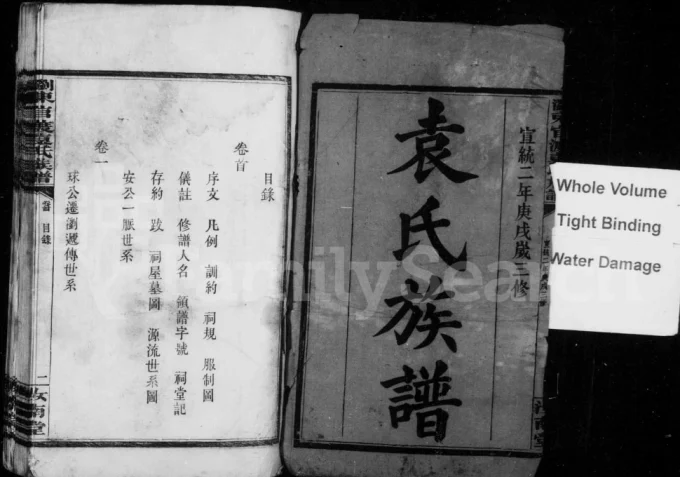 宣統二年庚戌歲三修
袁氏族譜
目錄
卷首
序文 凡例 訓約 祠規 服制圖
儀註 修譜人名 領譜字號 祠堂記
存約 跋 祠屋墓圖 源流世系圖
卷一
安公一脈世系
球公遷瀏遞傳世系
卷首 目錄
一
汝南堂
Whole Volume
Tight Binding
Water Damage
FamilySearch